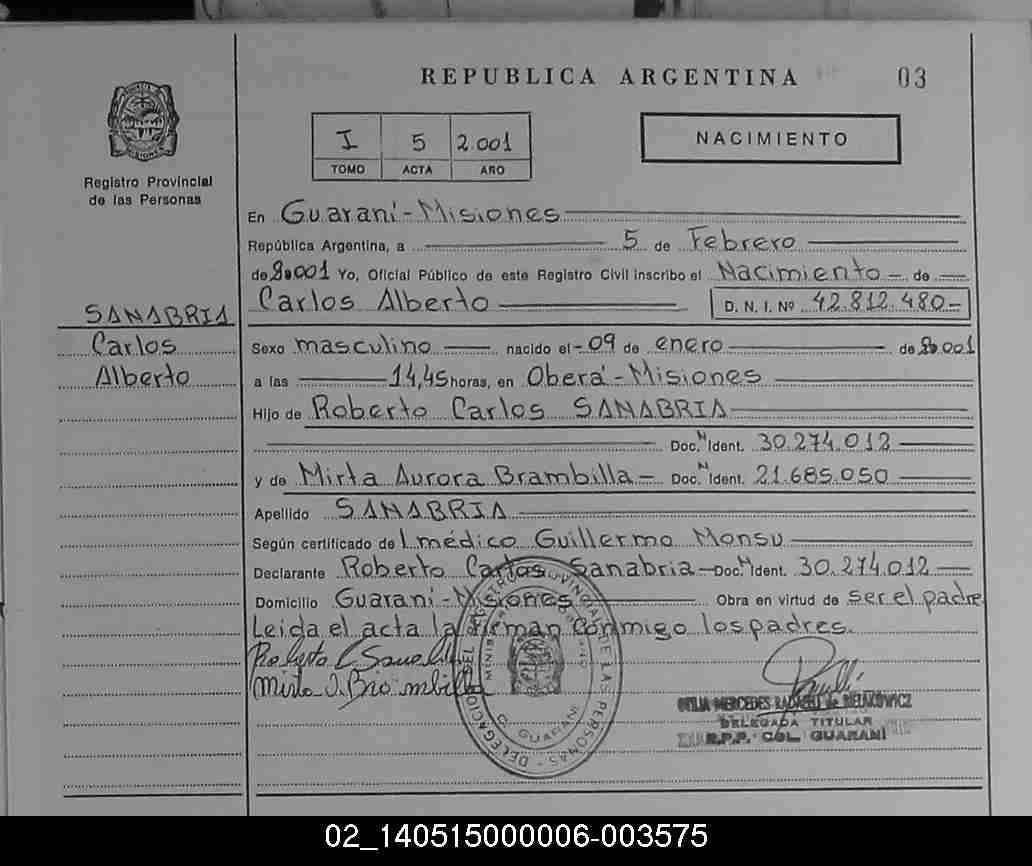 REPUBLICA ARGENTINA 03
I 5 2.001
TOMO ACTA AÑO
NACIMIENTO
MISIONES
Registro Provincial
de las Personas
En Guaraní - Misiones
República Argentina, a 5 de Febrero
de 2.001 Yo, Oficial Público de este Registro Civil inscribo el Nacimiento - de
Carlos Alberto D. N. I. Nº 42.812.480-
SANABRIA
Carlos
Alberto
Sexo masculino nacido el - 09 de enero de 2.001
a las 14,45 horas, en Oberá - Misiones
Hijo de Roberto Carlos SANABRIA
Doc. N Ident. 30.274.012
y de Mirta Aurora Brambilla - Doc. N Ident. 21.685.050
Apellido SANABRIA
Según certificado de l médico Guillermo Monsu
Declarante Roberto Carlos Sanabria - Doc. N Ident. 30.274.012
Domicilio Guaraní - Misiones Obra en virtud de ser el padre
Leida el acta la firman conmigo los padres.
Roberto C Sanabria
Mirta A. Brambilla
DELEGACION DEL REGISTRO PROVINCIAL DE LAS PERSONAS
GUARANI
MERCEDES de BIELAKOWICZ
DELEGADA TITULAR
R.P.P. COL. GUARANI
02_140515000006-003575